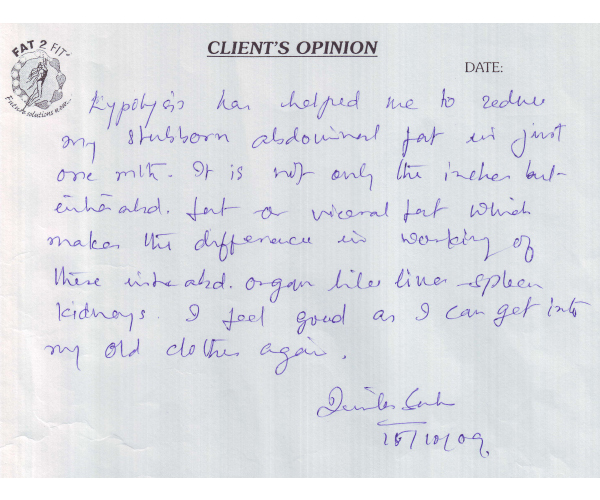 FAT 2 FIT
Future solutions now...
CLIENT'S OPINION
DATE:
has helped me to reduce
my stubborn abdominal fat in just
one mth. It is not only the inches but
abd. fat or viceral fat which
makes the difference in working of
these abd. organ like liver spleen
kidneys. I feel good as I can get into
my old clothes again.
15/10/09